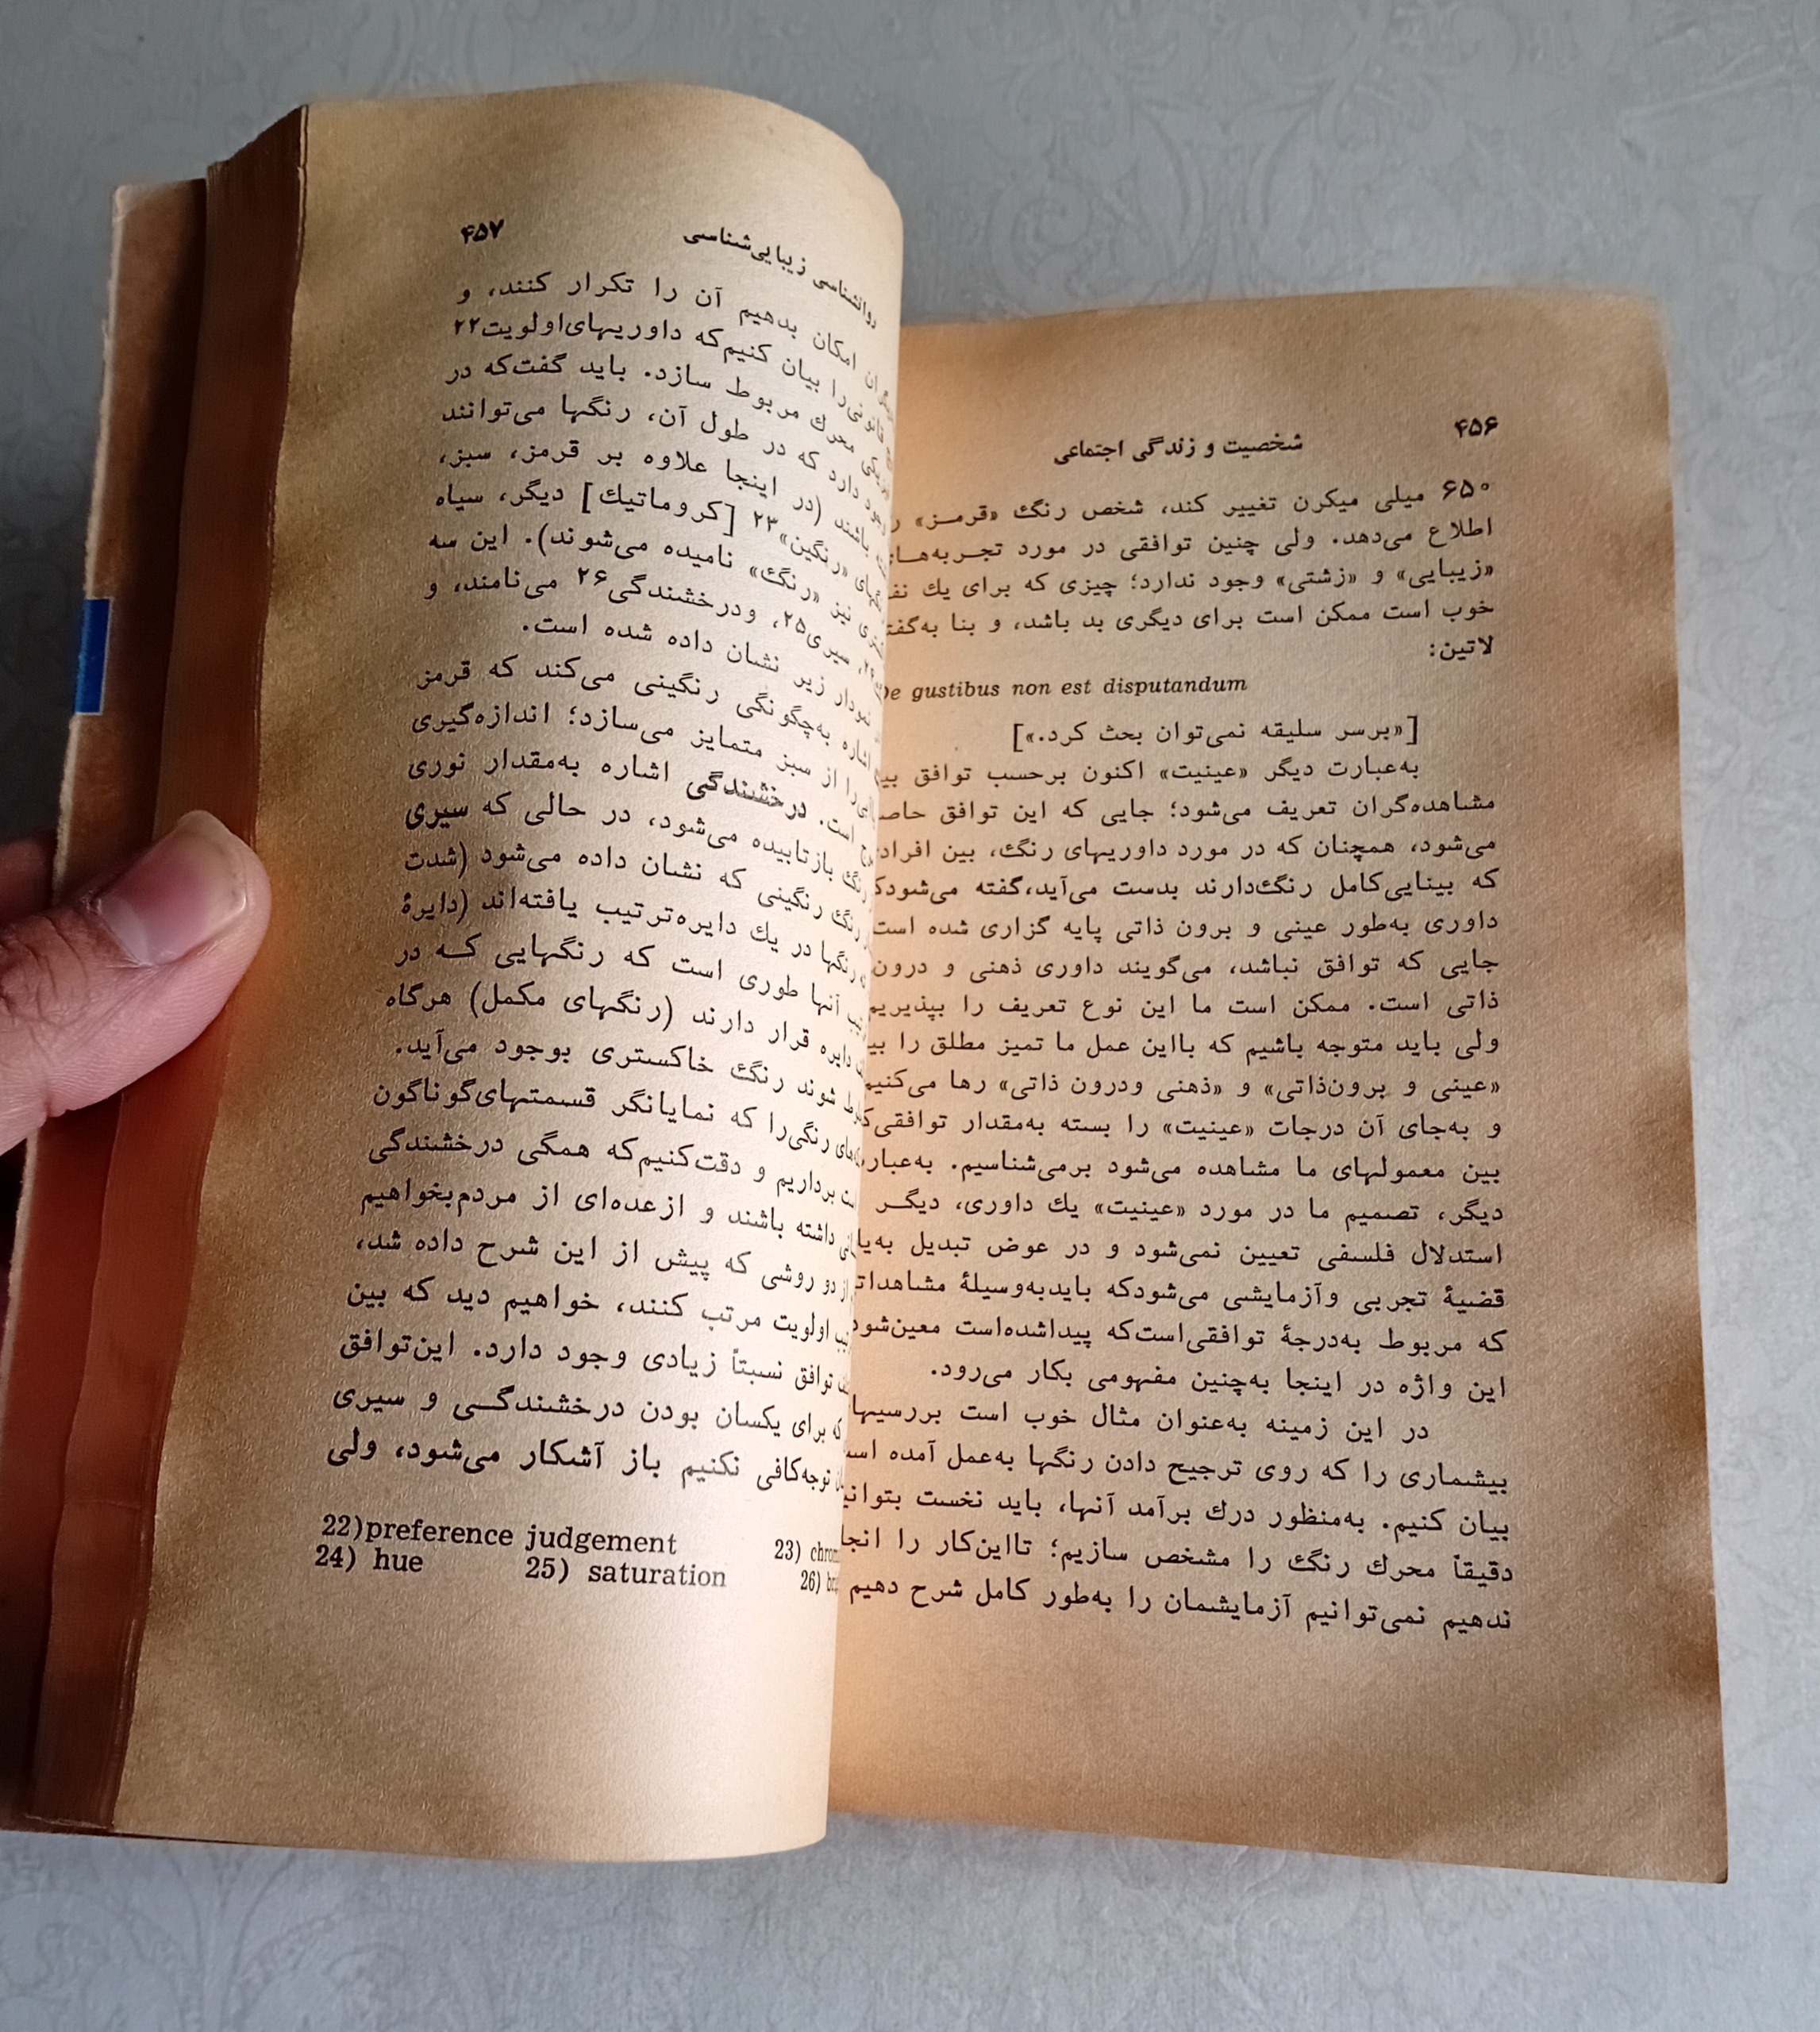 ۴۵۶
شخصیت و زندگی اجتماعی
۶۵۰ میلی میکرن تغییر کند، شخص رنگ «قرمـز»
اطلاع می‌دهد. ولی چنین توافقی در مورد تجـربه‌هـای
«زیبایی» و «زشتی» وجود ندارد؛ چیزی که برای یك نفر
خوب است ممکن است برای دیگری بد باشد، و بنا به‌گفتهٔ
لاتین:
De gustibus non est disputandum
[«برسر سلیقه نمی‌توان بحث کرد.»]
به‌عبارت دیگر «عینیت» اکنون برحسب توافق بین
مشاهده‌گران تعریف می‌شود؛ جایی که این توافق حاصل
می‌شود، همچنان که در مورد داوریهای رنگ، بین افرادی
که بینایی‌کامل رنگ‌دارند بدست می‌آید،گفته می‌شودکه
داوری به‌طور عینی و برون ذاتی پایه گزاری شده است
جایی که توافق نباشد، می‌گویند داوری ذهنی و درون
ذاتی است. ممکن است ما این نوع تعریف را بپذیریم
ولی باید متوجه باشیم که بااین عمل ما تمیز مطلق را بین
«عینی و برون‌ذاتی» و «ذهنی ودرون ذاتی» رها می‌کنیم
و به‌جای آن درجات «عینیت» را بسته به‌مقدار توافقی‌که
بین معمولهای ما مشاهده می‌شود برمی‌شناسیم. به‌عبارت
دیگر، تصمیم ما در مورد «عینیت» یك داوری، دیگـر
استدلال فلسفی تعیین نمی‌شود و در عوض تبدیل به‌یك
قضیهٔ تجربی وآزمایشی می‌شودکه بایدبه‌وسیلهٔ مشاهداتی
که مربوط به‌درجهٔ توافقی‌است‌که پیداشده‌است معین‌شود
این واژه در اینجا به‌چنین مفهومی بکار می‌رود.
در این زمینه به‌عنوان مثال خوب است بررسیهای
بیشماری را که روی ترجیح دادن رنگها به‌عمل آمده است
بیان کنیم. به‌منظور درك برآمد آنها، باید نخست بتوانیم
دقیقاً محرك رنگ را مشخص سازیم؛ تااین‌کار را انجام
ندهیم نمی‌توانیم آزمایشمان را به‌طور کامل شرح دهیم
روانشناسی زیبایی‌شناسی
۴۵۷
امکان بدهیم آن را تکرار کنند، و
قانونی‌را بیان کنیم‌که داوریهای‌اولویت۲۲
محرك مربوط سازد. باید گفت‌که در
دارد که در طول آن، رنگها می‌توانند
باشند (در اینجا علاوه بر قرمز، سبز،
«رنگین»۲۳ [کروماتیك] دیگر، سیاه
نیز «رنگ» نامیده می‌شوند). این سه
سیری۲۵، ودرخشندگی۲۶ می‌نامند، و
نمودار زیر نشان داده شده است.
اشاره به‌چگونگی رنگینی می‌کند که قرمز
را از سبز متمایز می‌سازد؛ اندازه‌گیری
است. درخشندگی اشاره به‌مقدار نوری
رنگ بازتابیده می‌شود، در حالی که سیری
رنگ رنگینی که نشان داده می‌شود (شدت
رنگها در یك دایره‌ترتیب یافته‌اند (دایرهٔ
آنها طوری است که رنگهایی کـه در
دایره قرار دارند (رنگهای مکمل) هرگاه
شوند رنگ خاکستری بوجود می‌آید.
رنگی‌را که نمایانگر قسمتهای‌گوناگون
برداریم و دقت‌کنیم‌که همگی درخشندگی
داشته باشند و ازعده‌ای از مردم‌بخواهیم
از دو روشی که پیش از این شرح داده شد،
اولویت مرتب کنند، خواهیم دید که بین
توافق نسبتاً زیادی وجود دارد. این‌توافق
که برای یکسان بودن درخشندگـی و سیری
توجه‌کافی نکنیم باز آشکار می‌شود، ولی
22)preference judgement 23)
24) hue 25) saturation 26)